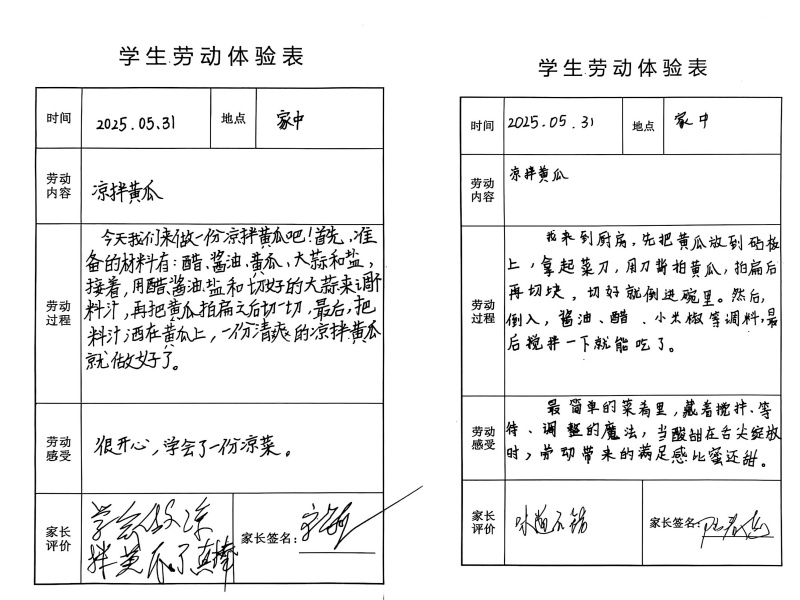 学生劳动体验表
时间 2025.05.31 地点 家中
劳动内容 凉拌黄瓜
劳动过程
今天我们来做一份凉拌黄瓜吧！首先，准
备的材料有：醋、酱油、黄瓜、大蒜和盐，
接着，用醋、酱油、盐和切好的大蒜来调
料汁，再把黄瓜拍扁之后切一切，最后，把
料汁洒在黄瓜上，一份清爽的凉拌黄瓜
就做好了。
劳动感受
很开心，学会了一份凉菜。
家长评价
学会做凉
拌黄瓜了真棒
家长签名：
学生劳动体验表
时间 2025.05.31 地点 家中
劳动内容 凉拌黄瓜
劳动过程
我来到厨房，先把黄瓜放到砧板
上，拿起菜刀，用刀背拍黄瓜，拍扁后
再切块，切好就倒进碗里。然后，
倒入，酱油、醋、小米椒等调料，最
后搅拌一下就能吃了。
劳动感受
最简单的菜肴里，藏着搅拌、等
待、调整的魔法，当酸甜在舌尖绽放
时，劳动带来的满足感比蜜还甜。
家长评价 味道不错
家长签名：